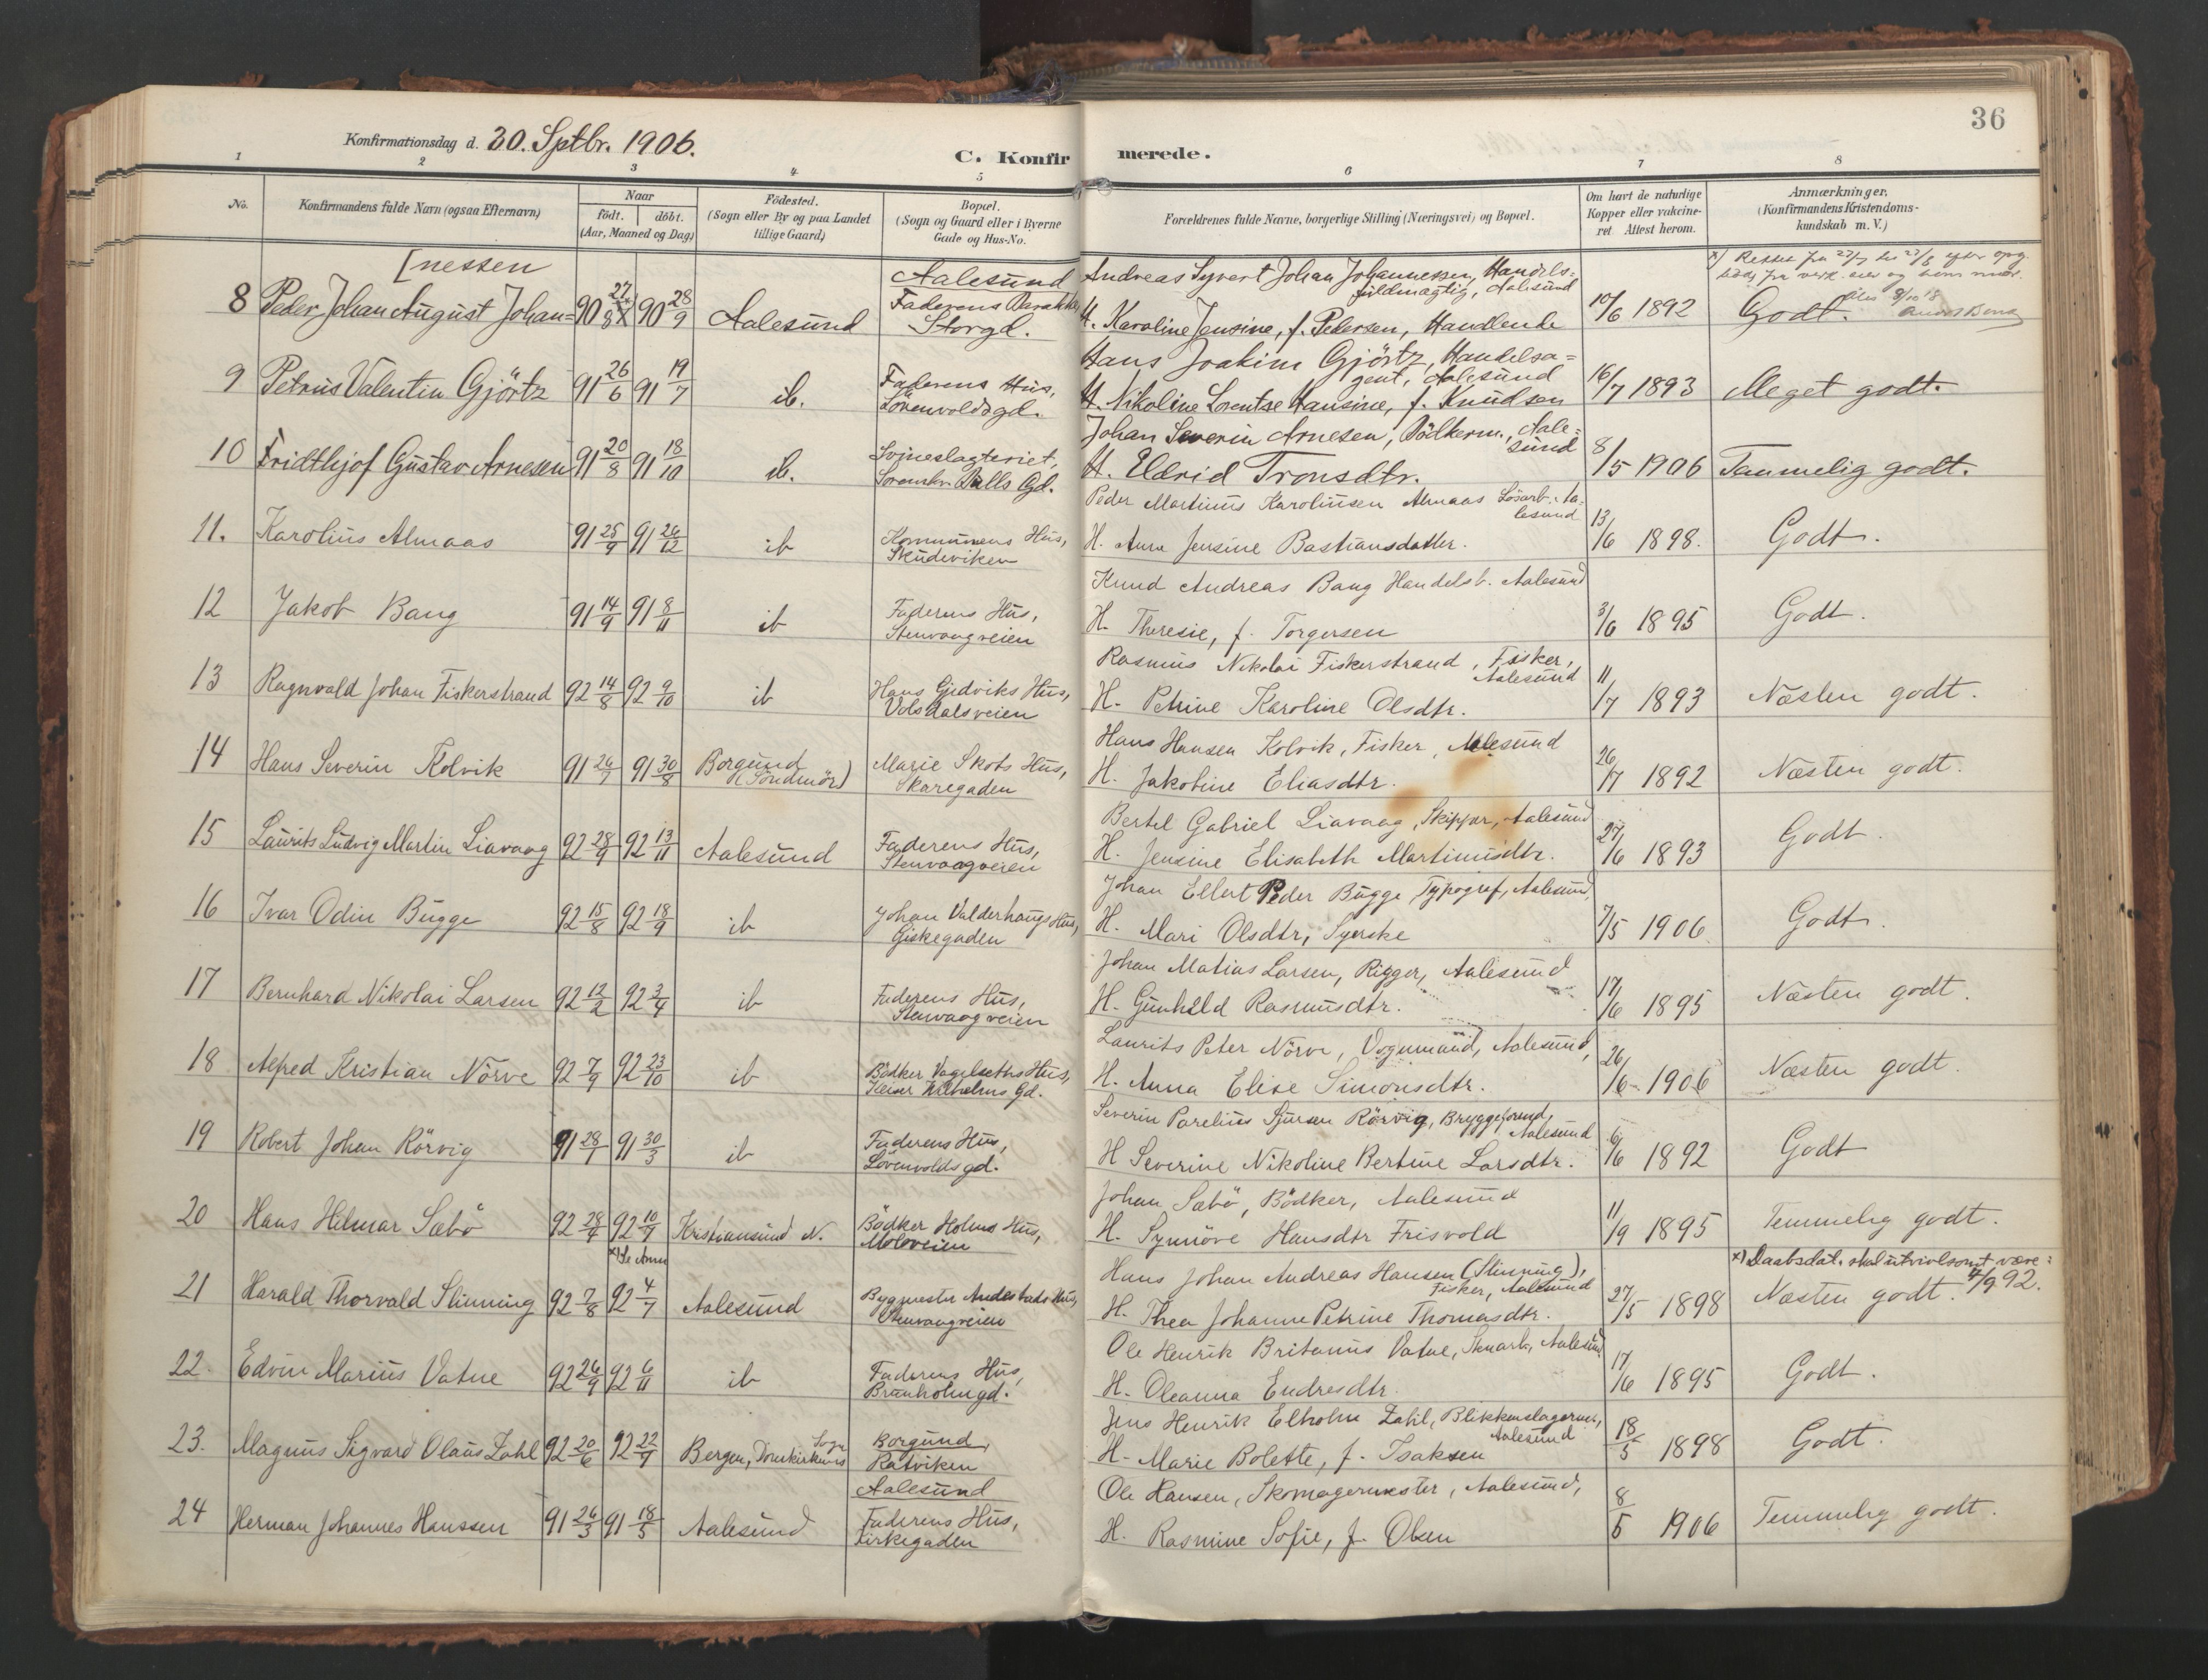 36
Konfirmationsdag d. 30. Sptbr. 1906.
C. Konfirmerede.
1 2 3 4 5 6 7 8
No.
Konfirmandens fulde Navn (ogsaa Efternavn)
Naar
födt. döbt.
(Aar, Maaned og Dag)
Födested.
(Sogn eller By og paa Landet
tillige Gaard)
Bopæl.
(Sogn og Gaard eller i Byerne
Gade og Hus-No.
Forældrenes fulde Navne, borgerlige Stilling (Næringsvei) og Bopæl.
Om havt de naturlige
Kopper eller vakcine-
ret Attest herom.
Anmærkninger.
(Konfirmandens Kristendoms-
kundskab m. V.)
[nessen
8 Peder Johan August Johan= 90 27/8 x) 90 28/9 Aalesund
Aalesund
Faderens Barakke
Storgd.
Andreas Syvert Johan Johannessen, Handels=
fuldmægtig, Aalesund
H. Karoline Jensine, f. Pedersen, Handlende
10/6 1892 Godt.
9 Petrus Valentin Gjörtz 91 26/6 91 19/7 ib.
Faderens Hus,
Lövenvoldsgd.
Hans Joakim Gjörtz, Handelsa=
gent, Aalesund
H. Nikoline Lorentse Hansine, f. Knudsen
16/7 1893 Meget godt.
10 Fridthjof Gustav Arnesen 91 20/8 91 18/10 ib.
Svineslagteriet,
Sorenskr. Bulls Gd.
Johan Severin Arnesen, Bödkerm., Aale=
sund
H. Eldrid Tronsdtr.
8/5 1906 Temmelig godt.
11. Karolius Almaas 91 25/9 91 26/12 ib
Kommunens Hus,
Skudeviken
Peder Martinus Karoliussen Almaas Lösarb. Aa-
lesund
H. Anne Jensine Bastiansdatter.
13/6 1898. Godt.
12 Jakob Bang 91 14/9 91 8/11 ib
Faderens Hus,
Stenvaagveien
Knud Andreas Bang Handelsb. Aalesund
H. Theresie, f. Torgersen
3/6 1895 Godt.
13 Ragnvald Johan Fiskerstrand 92 14/8 92 9/10 ib
Hans Gjedviks Hus,
Volsdalsveien
Rasmus Nikolai Fiskerstrand, Fisker,
Aalesund
H. Petrine Karoline Olsdtr.
11/7 1893 Næsten godt.
14 Hans Severin Kolvik 91 26/7 91 30/8 Borgund
(Söndmör)
Marie Skots Hus,
Skaregaden
Hans Hansen Kolvik, Fisker, Aalesund
H. Jakobine Eliasdtr.
26/7 1892 Næsten godt.
15 Laurits Ludvig Martin Liavaag 92 28/9 92 13/11 Aalesund
Faderens Hus,
Stenvaagveien
Bertel Gabriel Liavaag, Skipper, Aalesund
H. Jensine Elisabeth Martinusdtr.
27/6 1893 Godt.
16 Ivar Odin Bugge 92 15/8 92 18/9 ib
Johan Valderhaugs Hus,
Giskegaden
Johan Ellert Peder Bugge, Typograf, Aalesund,
H. Mari Olsdtr, Syerske
7/5 1906 Godt.
17 Bernhard Nikolai Larsen 92 12/2 92 3/4 ib
Faderens Hus,
Stenvaagveien
Johan Matias Larsen, Rigger, Aalesund
H. Gunhild Rasmusdtr.
17/6 1895 Næsten godt.
18 Alfred Kristian Nörve 92 7/9 92 23/10 ib
Bödker Vagelseths Hus,
Keiser Wilhelms Gd.
Laurits Peter Nörve, Vognmand, Aalesund,
H. Anna Elise Simonsdtr.
26/6 1906 Næsten godt.
19 Robert Johan Rörvig 91 28/1 91 30/3 ib
Faderens Hus,
Lövenvoldsgd.
Severin Parelius Sjursen Rörvig, Bryggeformd,
Aalesund
H Severine Nikoline Bertine Larsdtr.
6/6 1892 Godt
20 Hans Hilmar Sæbö 92 28/7 92 10/9 Kristiansund N.
Bödker Holms Hus,
Moloveien
Johan Sæbö, Bödker, Aalesund
H. Synnöve Hansdtr Frisvold
11/9 1895 Temmelig godt.
x) Se Anm
21 Harald Thorvald Slinning 92 7/8 92 4/7 Aalesund
Bygmester Andestads Hus,
Stenvaagveien
Hans Johan Andreas Hansen (Slinning),
Fisker, Aalesund
H. Thea Johanne Petrine Thomasdtr.
27/5 1898 Næsten godt.
x) Daabsdat. skal utvivlsomt være:
4/9 92.
22. Edvin Marius Vatne 92 26/9 92 6/11 ib
Faderens Hus,
Brauholmgd.
Ole Henrik Britanus Vatne, Stenarb., Aalesund
H. Oleanna Endresdtr.
17/6 1895 Godt.
23. Magnus Sigvard Olaus Zahl 92 20/6 92 22/9 Bergen, Domkirkens
Sogn
Borgund,
Ratviken
Jens Henrik Elholm Zahl, Blikkenslagerm.,
Aalesund
H. Marie Bolette, f. Isaksen
18/5 1898 Godt.
24 Herman Johannes Hanssen 91 26/3 91 18/5 Aalesund
Aalesund
Faderens Hus,
Kirkegaden
Ole Hansen, Skomagermester, Aalesund,
H. Rasmine Sofie, f. Olsen
8/5 1906 Temmelig godt.